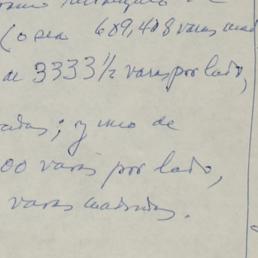 (o sea 609,408 varas cuad
de 3333 1/2 varas por lado,
adas; y uno de
00 varas por lado,
varas cuadradas.